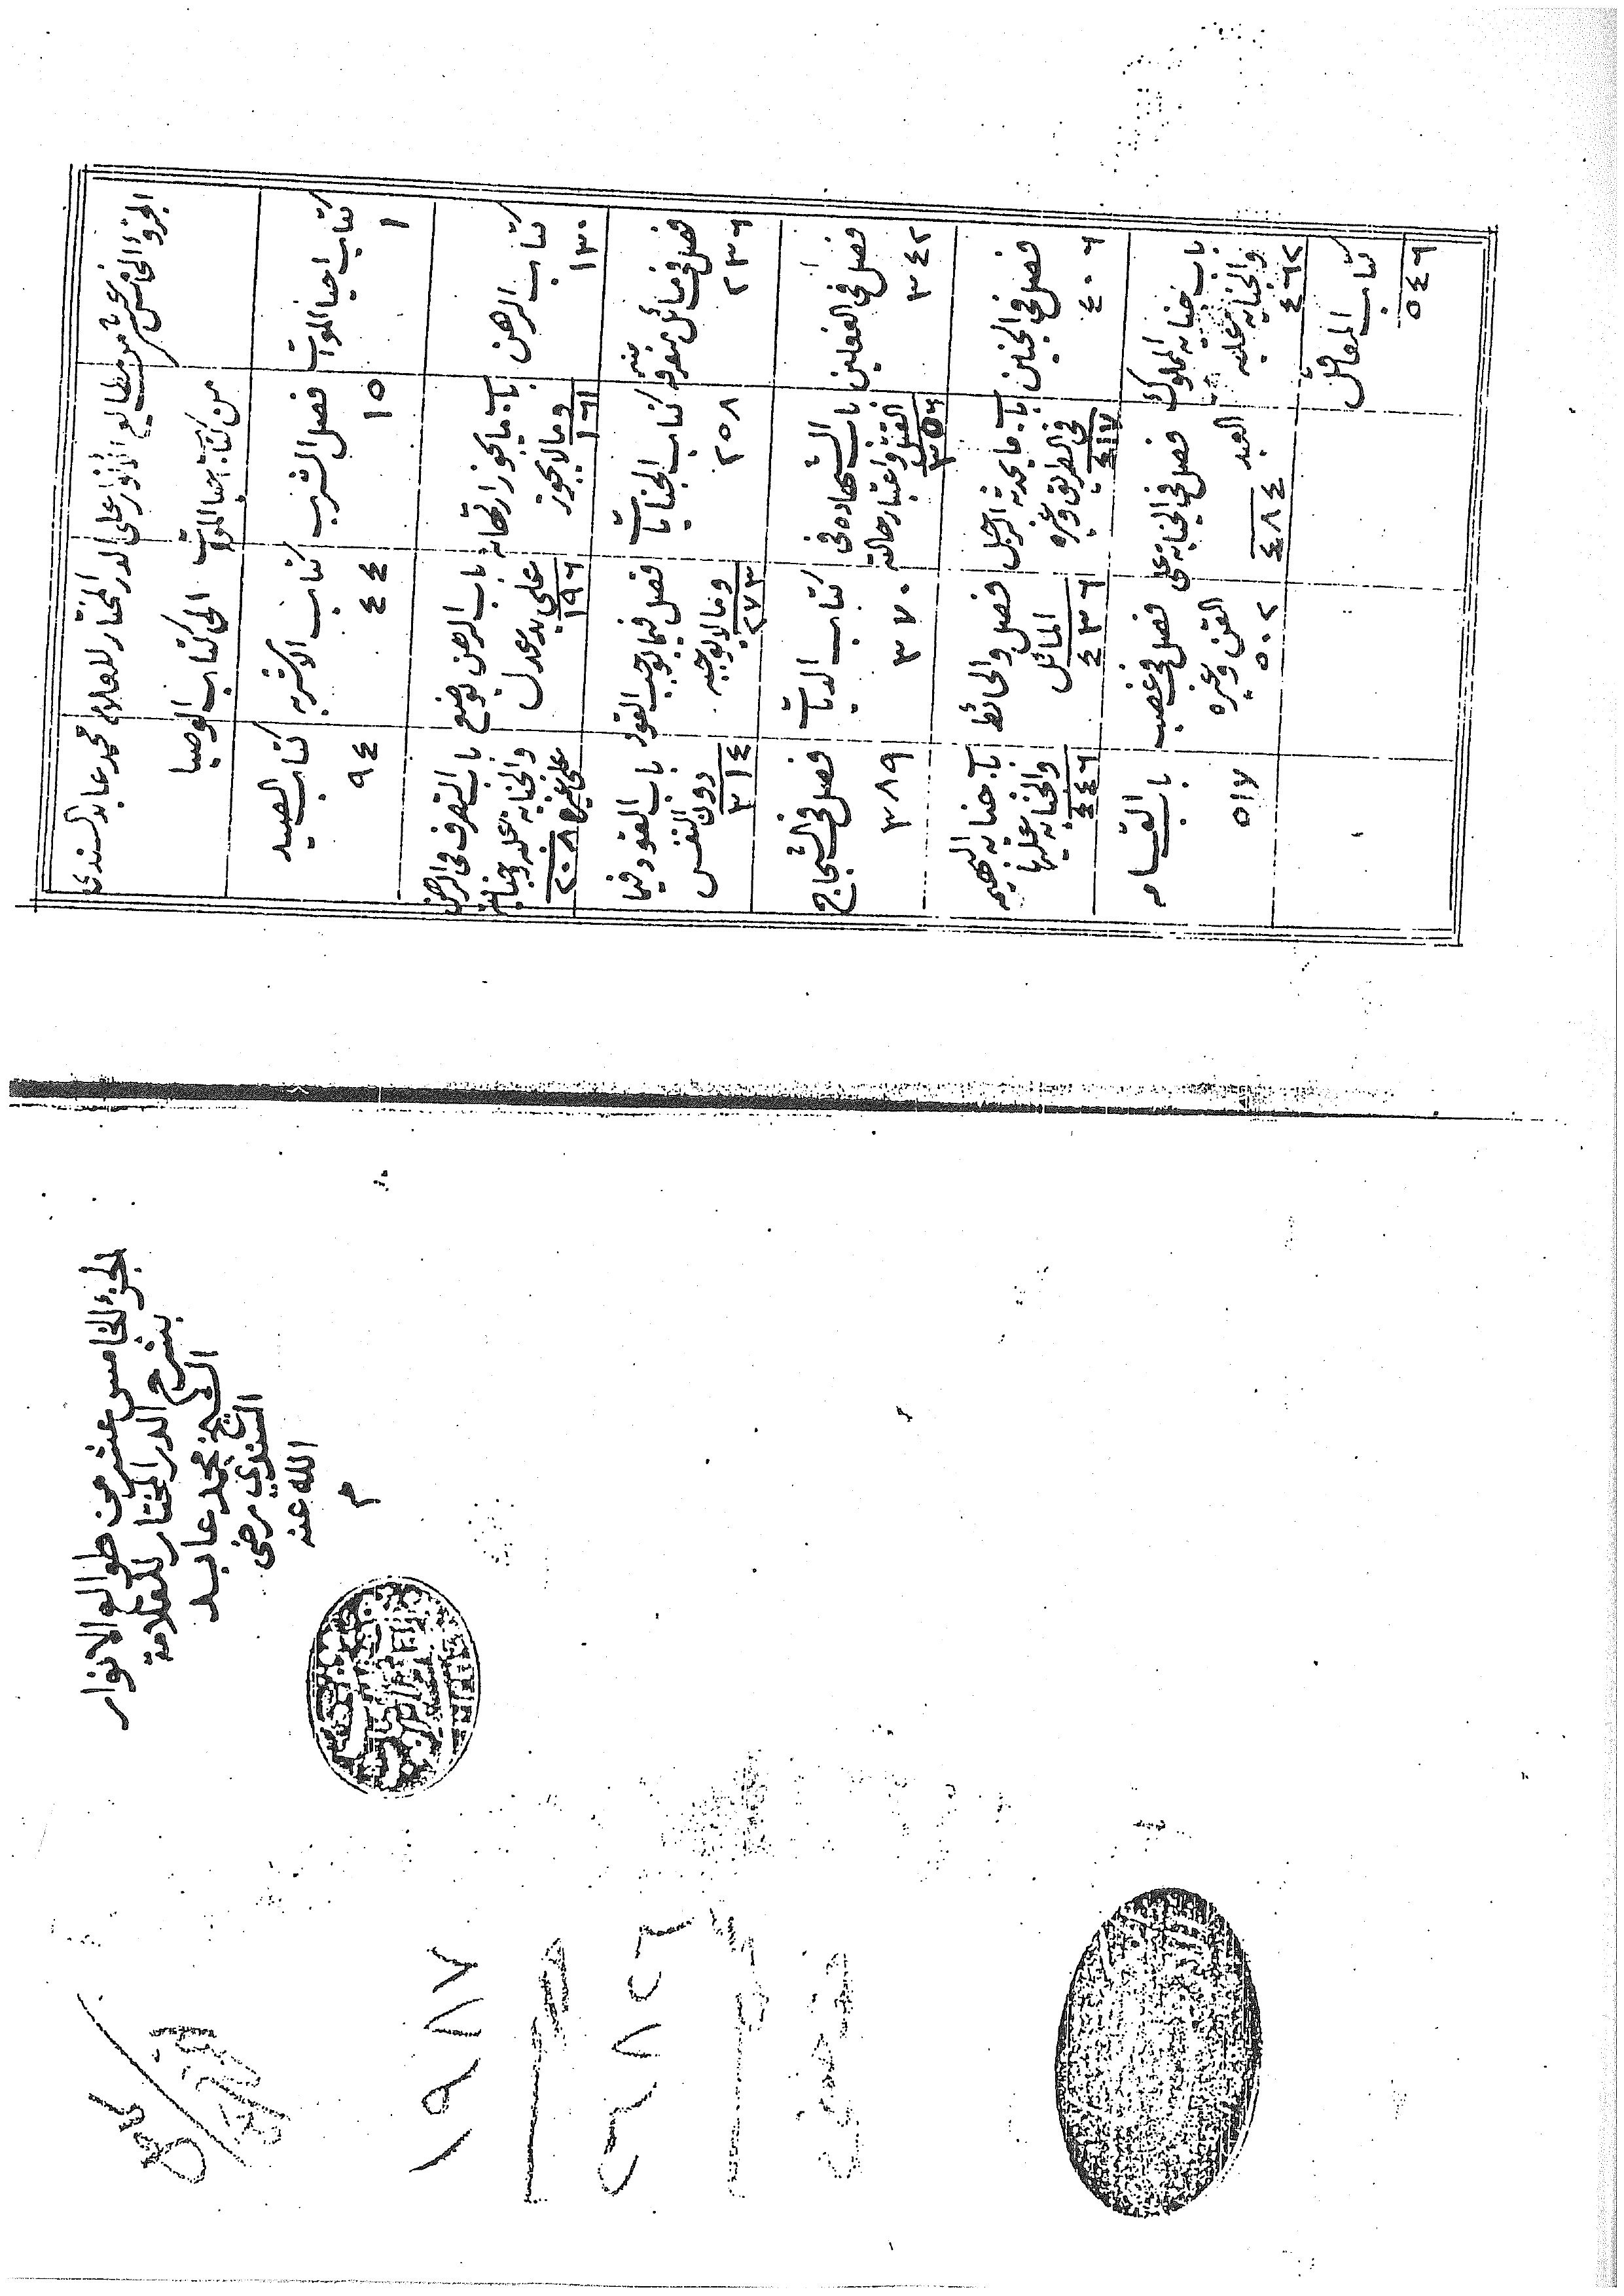 الجزؤ الخامس عشر من طوالع الأنوار على الدر المختار للعلامه محمد عابد السندي
من كتاب احيا الموات الى كتاب الوصيا
كتاب احيا الموات
١
فصل الشرب
١٥
كتاب الاشربه
٤٤
كتاب الصيد
٩٤
كتاب الرهن
١٣٠
باب ما يجوز ارتهانه
وما لا يجوز
١٦١
باب الرهن يوضع
على يد عدل
١٩٦
باب التصرف فى الرهن
والجنايه عليه وجنايته
على غيره ٢٠٨
فصل في مسائل متفرقه
٢٣٦
كتاب الجنايات
٢٥٨
فصل فيما يوجب القود
وما لا يوجبه
٢٧٣
باب القود فيما
دون النفس
٣١٤
فصل في الفعلين
٣٤٢
باب الشهاده فى
القتل واعتبار حالته
٣٥٦
كتاب الديات
٣٧٠
فصل في الشجاج
٣٨٩
فصل في الجنين
٤٠٦
باب ما يحدثه الرجل
في الطريق وغيره
٤١٧
فصل والحائط
المائل
٤٣٦
باب جنايه البهيمه
والجنايه عليها
٤٤٦
باب جنايه المملوك
والجنايه عليه
٤٦٢
فصل في الجنايه على
العبد
٤٨٤
فصل في غصب
القن وغيره
٥٠٢
باب القسامه
٥١٧
كتاب المعاقل
٥٤٦
الجزؤ الخامس عشر من طوالع الانوار
بشرح الدر المختار للعلامة
الشيخ محمد عابد
السندي رضى
الله عنه
م
١٩٨٧
٢٦٨٢٦